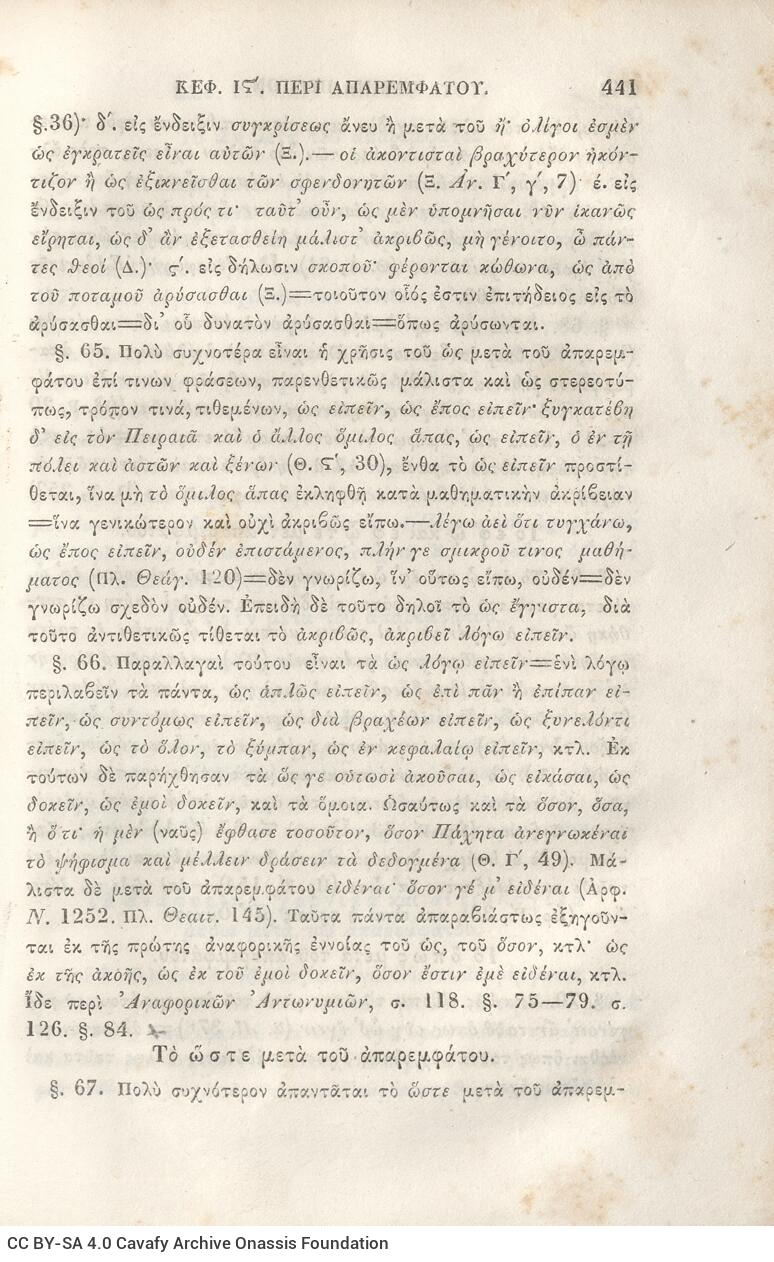 ΚΕΦ. ΙϚʹ. ΠΕΡΙ ΑΠΑΡΕΜΦΑΤΟΥ. 441
§. 36)· δʹ. εἰς ἔνδειξιν συγκρίσεως ἄνευ ἢ μετὰ τοῦ ἤ· ὀλίγοι ἐσμὲν
ὡς ἐγκρατεῖς εἶναι αὐτῶν (Ξ.).— οἱ ἀκοντισταὶ βραχύτερον ἠκόν-
τιζον ἢ ὡς ἐξικνεῖσθαι τῶν σφενδονητῶν (Ξ. Ἀν. Γʹ, γʹ, 7)· έ. εἰς
ἔνδειξιν τοῦ ὡς πρός τι· ταῦτ' οὖν, ὡς μὲν ὑπομνῆσαι νῦν ἱκανῶς
εἴρηται, ὡς δ' ἂν ἐξετασθείη μάλιστ' ἀκριβῶς, μὴ γένοιτο, ὦ πάν-
τες θεοί (Δ.)· ϛʹ. εἰς δήλωσιν σκοποῦ· φέρονται κώθωνα, ὡς ἀπὸ
τοῦ ποταμοῦ ἀρύσασθαι (Ξ.)=τοιοῦτον οἷός ἐστιν ἐπιτήδειος εἰς τὸ
ἀρύσασθαι=δι' οὗ δυνατὸν ἀρύσασθαι=ὅπως ἀρύσωνται.
§. 65. Πολὺ συχνοτέρα εἶναι ἡ χρῆσις τοῦ ὡς μετὰ τοῦ ἀπαρεμ-
φάτου ἐπί τινων φράσεων, παρενθετικῶς μάλιστα καὶ ὡς στερεοτύ-
πως, τρόπον τινά, τιθεμένων, ὡς εἰπεῖν, ὡς ἔπος εἰπεῖν· ξυγκατέβη
δ' εἰς τὸν Πειραιᾶ καὶ ὁ ἄλλος ὅμιλος ἅπας, ὡς εἰπεῖν, ὁ ἐν τῇ
πόλει καὶ ἀστῶν καὶ ξένων (Θ. Ϛʹ, 30), ἔνθα τὸ ὡς εἰπεῖν προστί-
θεται, ἵνα μὴ τὸ ὅμιλος ἅπας ἐκληφθῇ κατὰ μαθηματικὴν ἀκρίβειαν
=ἵνα γενικώτερον καὶ οὐχὶ ἀκριβῶς εἴπω.—λέγω ἀεὶ ὅτι τυγχάνω,
ὡς ἔπος εἰπεῖν, οὐδὲν ἐπιστάμενος, πλήν γε σμικροῦ τινος μαθή-
ματος (Πλ. Θεάγ. 120)=δὲν γνωρίζω, ἵν' οὕτως εἴπω, οὐδέν=δὲν
γνωρίζω σχεδὸν οὐδέν. Ἐπειδὴ δὲ τοῦτο δηλοῖ τὸ ὡς ἔγγιστα, διὰ
τοῦτο ἀντιθετικῶς τίθεται τὸ ἀκριβῶς, ἀκριβεῖ λόγῳ εἰπεῖν.
§. 66. Παραλλαγαὶ τούτου εἶναι τὰ ὡς λόγῳ εἰπεῖν=ἑνὶ λόγῳ
περιλαβεῖν τὰ πάντα, ὡς ἁπλῶς εἰπεῖν, ὡς ἐπὶ πᾶν ἢ ἐπίπαν εἰ-
πεῖν, ὡς συντόμως εἰπεῖν, ὡς διὰ βραχέων εἰπεῖν, ὡς ξυνελόντι
εἰπεῖν, ὡς τὸ ὅλον, τὸ ξύμπαν, ὡς ἐν κεφαλαίῳ εἰπεῖν, κτλ. Ἐκ
τούτων δὲ παρήχθησαν τὰ ὥς γε οὑτωσὶ ἀκοῦσαι, ὡς εἰκάσαι, ὡς
δοκεῖν, ὡς ἐμοὶ δοκεῖν, καὶ τὰ ὅμοια. Ὡσαύτως καὶ τὰ ὅσον, ὅσα,
ἢ ὅτι· ἡ μὲν (ναῦς) ἔφθασε τοσοῦτον, ὅσον Πάχητα ἀνεγνωκέναι
τὸ ψήφισμα καὶ μέλλειν δράσειν τὰ δεδογμένα (Θ. Γʹ, 49). Μά-
λιστα δὲ μετὰ τοῦ ἀπαρεμφάτου εἰδέναι· ὅσον γέ μ' εἰδέναι (Ἀρφ.
Ν. 1252. Πλ. Θεαιτ. 145). Ταῦτα πάντα ἀπαραβιάστως ἐξηγοῦν-
ται ἐκ τῆς πρώτης ἀναφορικῆς ἐννοίας τοῦ ὡς, τοῦ ὅσον, κτλ· ὡς
ἐκ τῆς ἀκοῆς, ὡς ἐκ τοῦ ἐμοὶ δοκεῖν, ὅσον ἔστιν ἐμὲ εἰδέναι, κτλ.
Ἴδε περὶ Ἀναφορικῶν Ἀντωνυμιῶν, σ. 118. §. 75—79. σ.
126. §. 84.
Τὸ ὥστε μετὰ τοῦ ἀπαρεμφάτου.
§. 67. Πολὺ συχνότερον ἀπαντᾶται τὸ ὥστε μετὰ τοῦ ἀπαρεμ-
CC BY-SA 4.0 Cavafy Archive Onassis Foundation